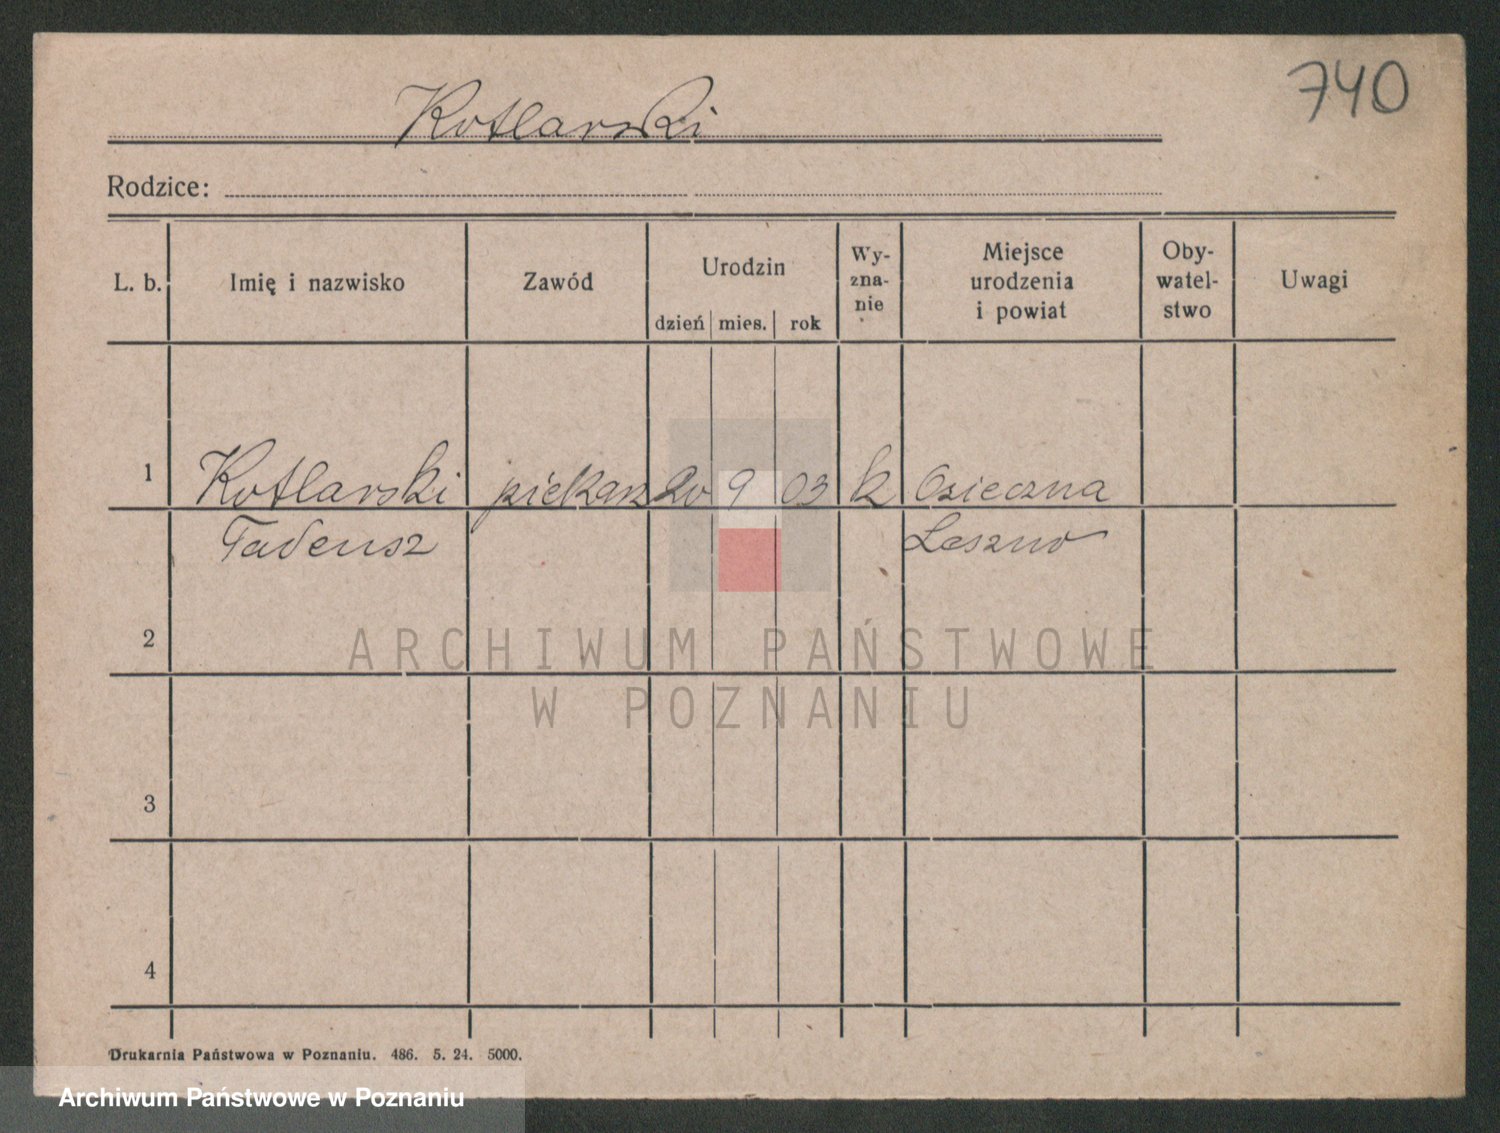 740
Kotlarski
Rodzice:
L. b.
Imię i nazwisko
Zawód
Urodzin
dzień mies. rok
Wy-
zna-
nie
Miejsce
urodzenia
i powiat
Oby-
watel-
stwo
Uwagi
1 Kotlarski piekarz 20 9 03 k Osieczna
Tadeusz Leszno
2
3
4
ARCHIWUM PAŃSTWOWE
W POZNANIU
Drukarnia Państwowa w Poznaniu. 486. 5. 24. 5000.
Archiwum Państwowe w Poznaniu